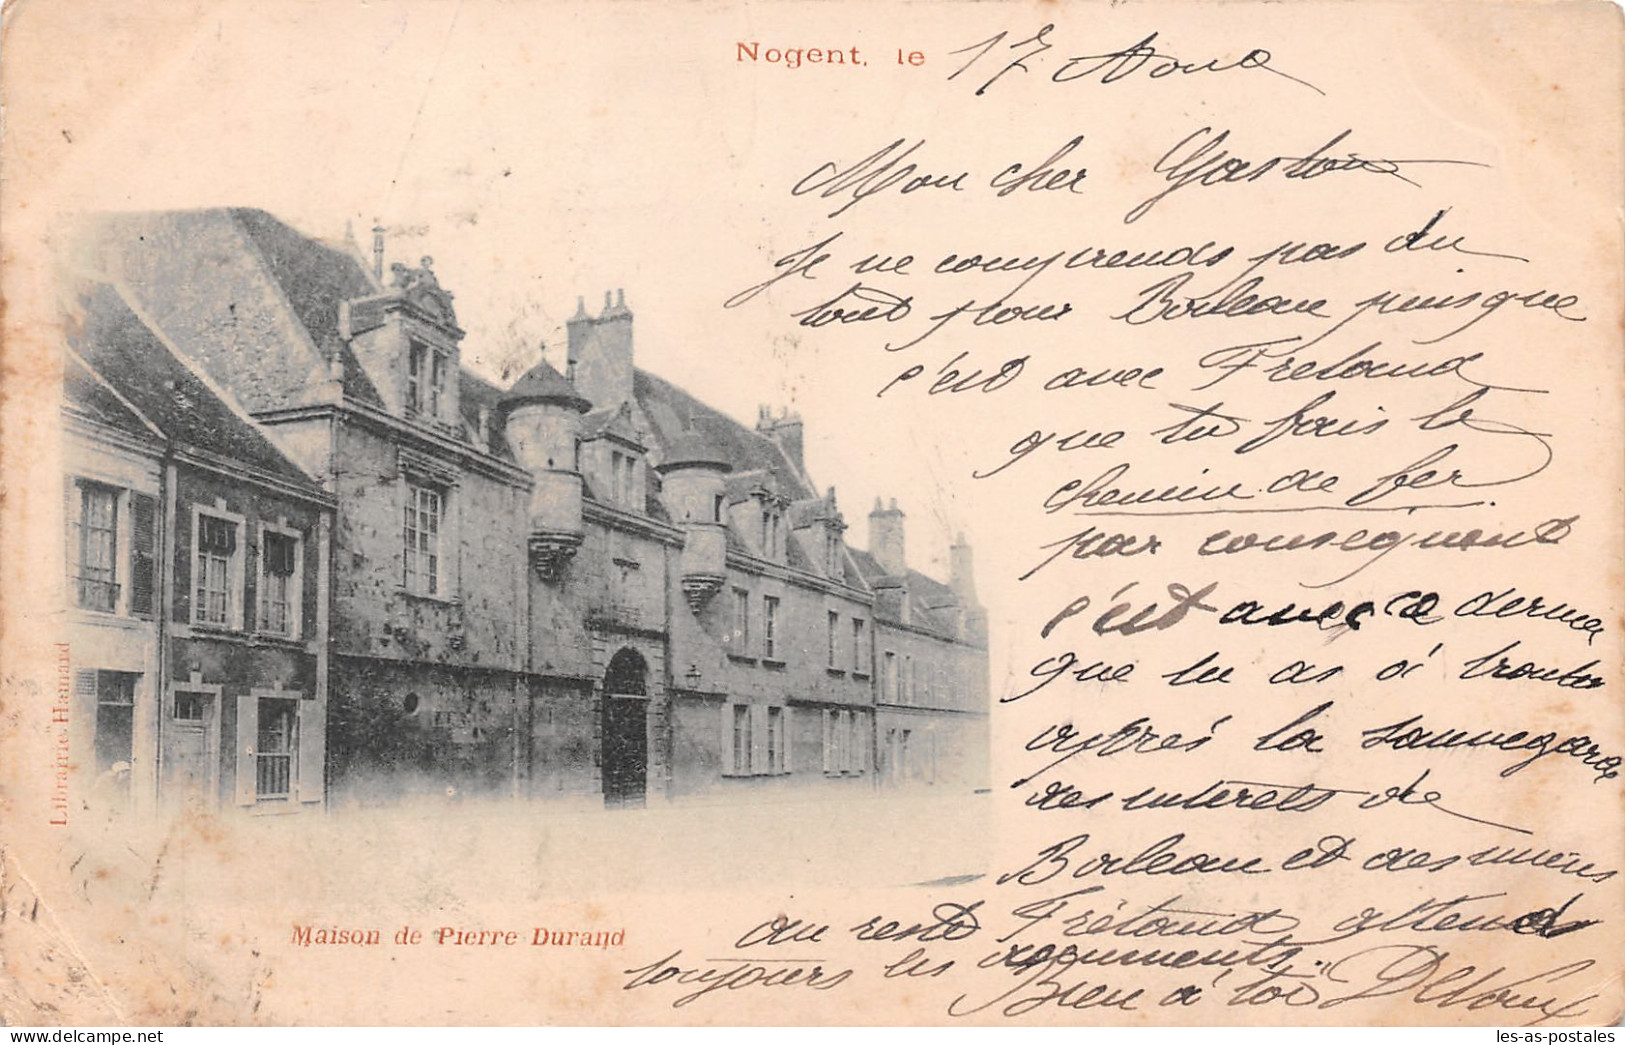 Nogent, le 17 Aout
Mon cher Gaston
Je ne comprends pas du
tout pour Boileau puisque
c'est avec Fretaud
que tu fais le
chemin de fer
par conséquent
c'est avec ce dernier
que tu as à traiter
après la sauvegarde
des intérets de
Boileau et des miens
au reste Frétaud attend
toujours les documents.
Bien à toi
Maison de Pierre Durand
Librairie Hamard
les-as-postales